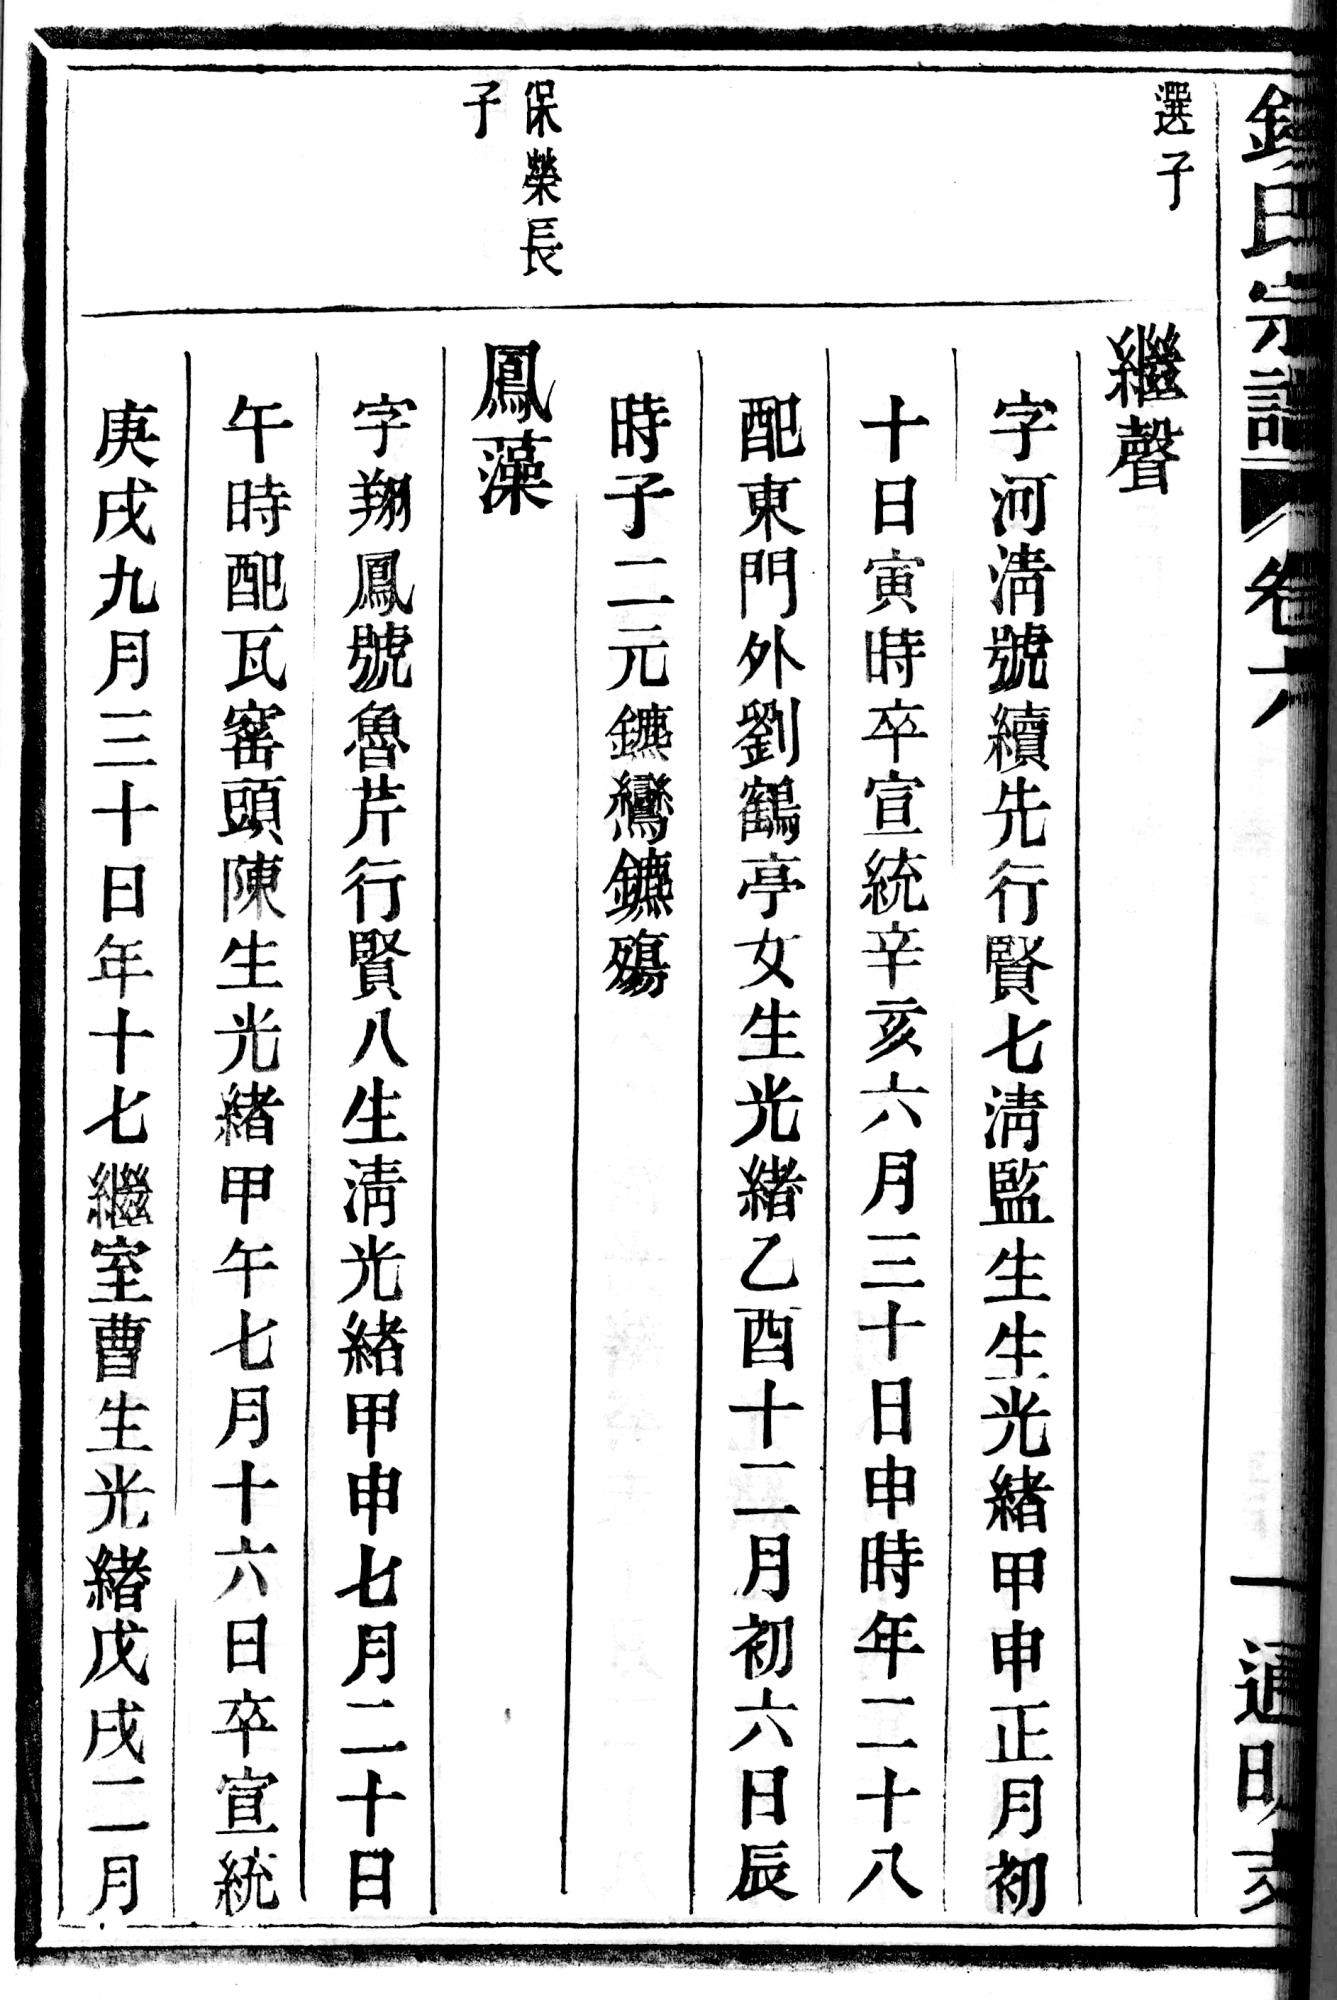 氏宗譜
卷六
一
通明
選子
繼聲
字河淸號續先行賢七淸監生生光緒甲申正月初
十日寅時卒宣統辛亥六月三十日申時年二十八
配東門外劉鶴亭女生光緒乙酉十二月初六日辰
時子二元鑣鸞鑣殤
保榮長
子
鳳藻
字翔鳳號魯芹行賢八生淸光緒甲申七月二十日
午時配瓦窰頭陳生光緒甲午七月十六日卒宣統
庚戌九月三十日年十七繼室曹生光緒戊戌二月